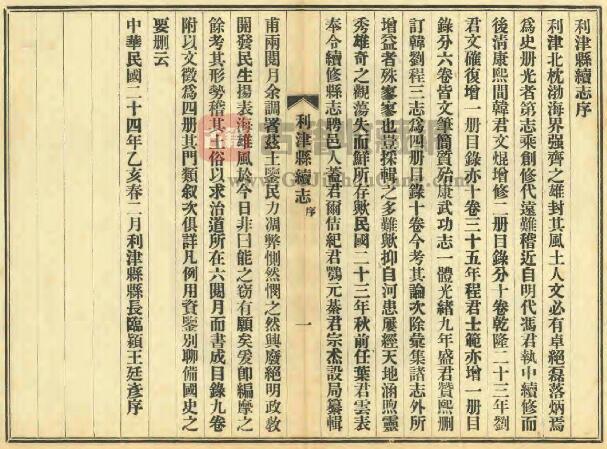 利津縣續志序
利津北枕渤海界强齊之雄封其風土人文必有卓絕磊落炳焉
為史册光者第志乘創修代遠難稽近自明代馮君執中續修而
後清康熙間韓君文焜增修二册目錄分十卷乾隆二十三年劉
君文確復增一册目錄亦十卷三十五年程君士範亦增一册目
錄分六卷皆文筆簡質殆康武功志一體光緒九年盛君贊熙删
訂韓劉程三志為四册目錄十卷今考其論次除彙集諸志外所
增益者殊寥寥也豈採輯之多難歟抑自河患屢經天地涵煦靈
秀雄奇之觀蕩失而鮮所存歟民國二十三年秋前任葉君雲表
奉令續修縣志聘邑人蓋君爾佶紀君鶚元綦君宗杰設局纂輯
利津縣續志
序
一
甫兩閱月余調署茲土鑒民力凋弊惻然憫之然興廢絕明政敎
開發民生揚表海雄風於今日非曰能之竊有願矣爰卽編摩之
餘考其形勢稽其土俗以求治道所在六閱月而書成目錄九卷
附以文徵為四册其門類叙次俱詳凡例用資鑒別聊備國史之
要删云
中華民國二十四年乙亥春二月利津縣縣長臨潁王廷彥序